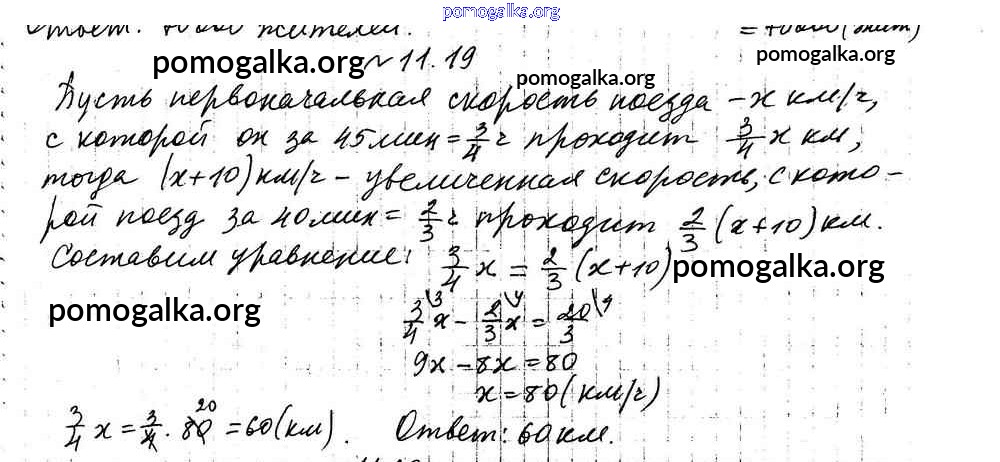 pomogalka.org
Ответ: 40000 жителей. = 40000 (жит)
pomogalka.org № 11.19 pomogalka.org pomogalka.org
Пусть первоначальная скорость поезда – x км/ч,
с которой он за 45 мин = 3/4 ч проходит 3/4 x км,
тогда (x+10) км/ч – увеличенная скорость, с кото-
рой поезд за 40 мин = 2/3 ч проходит 2/3 (x+10) км.
Составим уравнение: 3/4 x = 2/3 (x+10) pomogalka.org
pomogalka.org 3/4 \3 x – 2/3 \4 x = 20/3 \4
9x – 8x = 80
x = 80 (км/ч)
3/4 x = 3/4 · 80 20 = 60 (км). Ответ: 60 км.